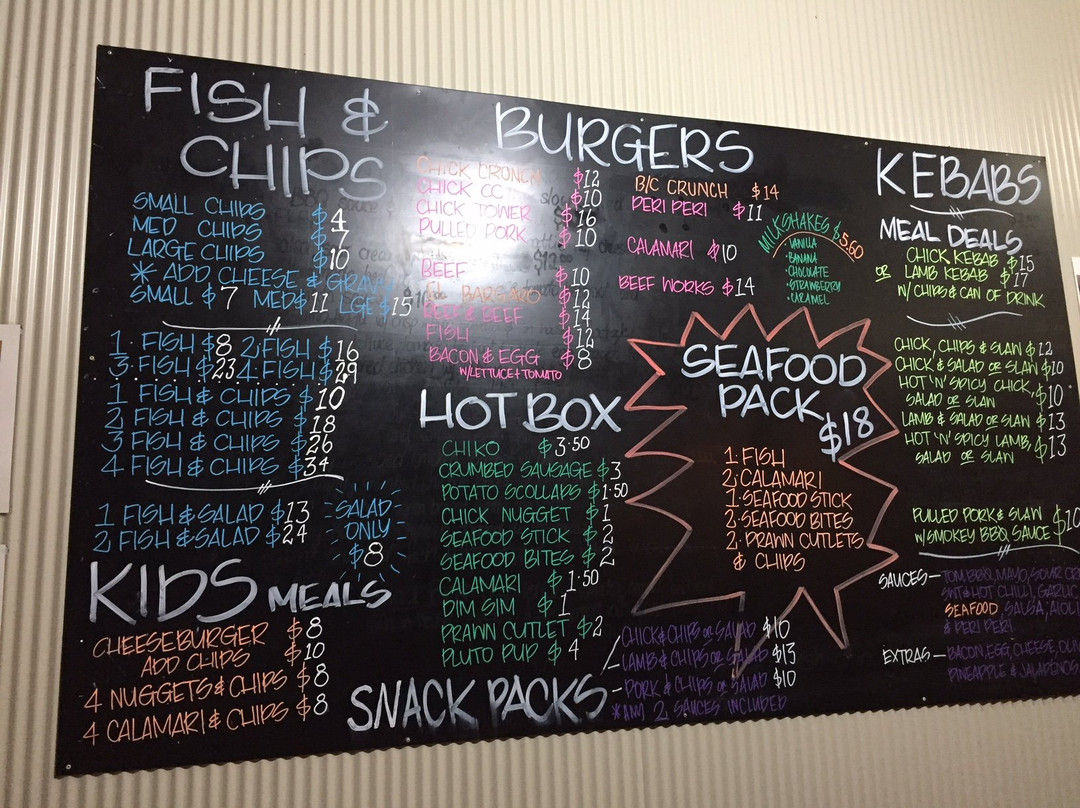 FISH &
CHIPS
SMALL CHIPS $4
MED CHIPS $7
LARGE CHIPS $10
* ADD CHEESE & GRAVY
SMALL $7 MED $11 LGE $15
1· FISH $8 2· FISH $16
3· FISH $23 4· FISH $29
1 FISH & CHIPS $10
2 FISH & CHIPS $18
3 FISH & CHIPS $26
4 FISH & CHIPS $34
1 FISH & SALAD $13
2 FISH & SALAD $24
SALAD
ONLY
$8
KIDS MEALS
CHEESEBURGER $8
ADD CHIPS $10
4 NUGGETS & CHIPS $8
4 CALAMARI & CHIPS $8
BURGERS
CHICK CRUNCH $12
CHICK CC $10
CHICK TOWER $16
PULLED PORK $10
BEEF $10
EL BARGARO $12
BEEF & BEEF $14
FISH $12
BACON & EGG $8
W/LETTUCE+TOMATO
B/C CRUNCH $14
PERI PERI $11
CALAMARI $10
BEEF WORKS $14
MILKSHAKES $5.60
· VANILLA
· BANANA
· CHOCOLATE
· STRAWBERRY
· CARAMEL
HOT BOX
CHIKO $3·50
CRUMBED SAUSAGE $3
POTATO SCOLLAPS $1·50
CHICK NUGGET $1
SEAFOOD STICK $2
SEAFOOD BITES $2
CALAMARI $1·50
DIM SIM $1
PRAWN CUTLET $2
PLUTO PUP $4
SEAFOOD
PACK $18
1· FISH
2· CALAMARI
1· SEAFOOD STICK
2· SEAFOOD BITES
2· PRAWN CUTLETS
& CHIPS
SNACK PACKS
CHICK & CHIPS OR SALAD $10
LAMB & CHIPS OR SALAD $13
PORK & CHIPS OR SALAD $10
* ANY 2 SAUCES INCLUDED
KEBABS
MEAL DEALS
CHICK KEBAB $15
OR LAMB KEBAB $17
W/ CHIPS & CAN OF DRINK
CHICK, CHIPS & SLAW $12
CHICK & SALAD OR SLAW $10
HOT 'N' SPICY CHICK,
SALAD OR SLAW $10
LAMB & SALAD OR SLAW $13
HOT 'N' SPICY LAMB,
SALAD OR SLAW $13
PULLED PORK & SLAW $10
W/SMOKEY BBQ SAUCE
SAUCES— TOM, BBQ, MAYO, SOUR
SWT & HOT CHILLI, GARLIC
SEAFOOD SALSA, AIOLI
& PERI PERI
EXTRAS— BACON, EGG, CHEESE,
PINEAPPLE & JALAPENOS